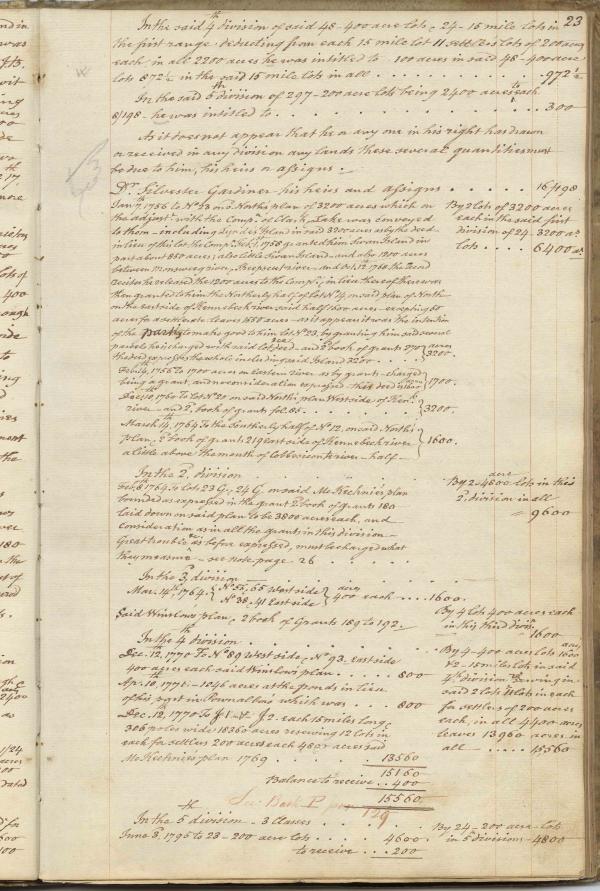 23
In the said 4th division of said 48-400 acre lots, 24-15 mile lots in
the first range - deducting from each 15 mile lot 11 settlers lots of 200 acres
each, in all 2200 acres he was intitled to 100 acres in said 48-400 acre
lots 872½ in the said 15 mile lots in all . . . . . 972½
In the said 5th division of 297-200 acre lots being 2400 acres to each
8/198 - he was intitled to . . . . . 300
As it does not appear that he or any one in his right has drawn
or received in any division any lands these several quantities must
be due to him, his heirs or assigns.
Dr. Silvester Gardiner his heirs and assigns . . . . . 16/198
Jany 7, 1756 To No 23 on Norths plan of 3200 acres which on
the adjustt. with the Compy. of Clark & Lake was conveyed
to them - including Island in said 3200 acres by the deed -
in lieu of this lot the Compy. Feb. 1, 1758 granted him Swan Island in
part about 850 acres; also Little Swan Island - and also 1200 acres
between Monsweag river, Sheepscut river - and Oct. 12, 1768 the
he released the 1200 acres to the Compy., in lieu thereof there was
then granted to him the Northerly half of lot No 4, on said plan of North
on the east side of Kennebeck river said half 1600 acres - excepting 50
acres for a settler &c leaves 1550 acres - as it appears it was the intention
of the party to make good to him lot No 23, by granting him said several
parcels he is charged with said lot, see deed - and 2d book of grants 270 acres
the deed expresses the whole including said Island 3200 . . . 3200.
Feb. 14, 1756 To 1700 acres on Eastern river as by grant - charged
being a grant, and no consideration expressed - that deed is 1700 . 1700.
Dec. 10, 1760 To lot No 20 on said Norths plan West side of Kenk.
river - and 2d. book of grants fol. 85 . . . . . 3200.
March 14, 1764 To the Southerly half of No 12, on said Norths
plan, 2d book of grants, 219 East side of Kennebeck river
a little above the mouth of Cobbiseconte river - half - 1600.
By 2 lots of 3200 acres
each in the said first
division of 24. 3200 as.
lots . . . . 6400 as.
In the 2d. division
Feb. 8, 1764 To lots 23 G, 24 G. on said McKechnies plan
bounded as expressed in the grant 2d book of grants 180
laid down on said plan to be 3800 acres each, and
consideration as in all the grants in this division -
Great trouble &c as before expressed, must be charged what
they measure - see note page 26
By 2-4800 acre lots in this
2d. division in all
9600
In the 3d division
Mar. 14th, 1764 . No 55, 65 West side
No 38, 41 East side 400 acres each . . . 1600.
Said Winslows plan, 2 book of Grants 189 to 192 -
By 4 lots 400 acres each
in this third divin.
1600
In the 4th division
Dec. 12, 1770 To No 89 West side, No 93 - East side
400 acres each said Winslows plan . . . 800
Apr. 10, 1771 - 1246 acres at the ponds in lieu
of his right in Pownalboro which was . . . 800
Dec. 12, 1770 To J 1 & J 2. each 15 miles long
306 poles wide 18360 acres reserving 12 lots in
each for settlers 200 acres each 4800 acres said
McKechnies plan 1769 . . . . . 13560
15160
Balance to receive . . 400
15560
By 4-400 acre lots 1600 acres
& 2-15 mile lots in said
4th division reserving in
said 2 lots 11 lots in each
for settlers of 200 acres
each, in all 4400 acres
leaves 13960 acres in
all . . . . . 15560
See Book P page 129
In the 5th division - 3 Classes
June 3, 1795 to 23-200 acre lots . . . 4600
to receive . . . 200
By 24-200 acre lots
in 5th division - 4800